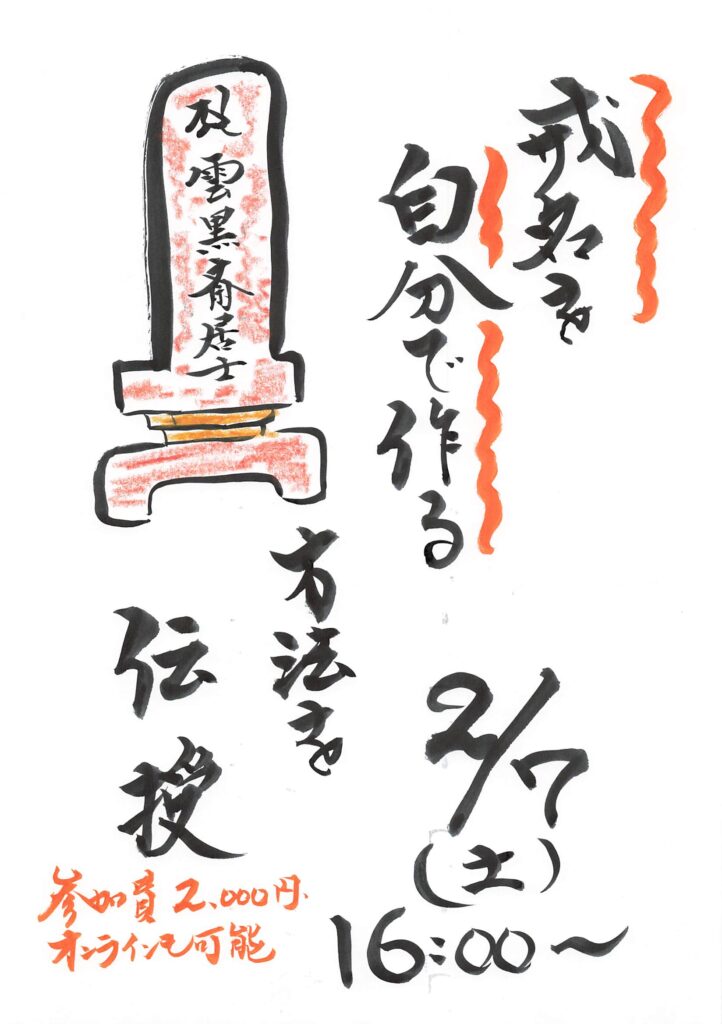 戒名を
自分で作る
雲黒斎居士
方法を
伝授
2/7
(土)
16:00〜
参加費 2,000円.
オンラインも可能